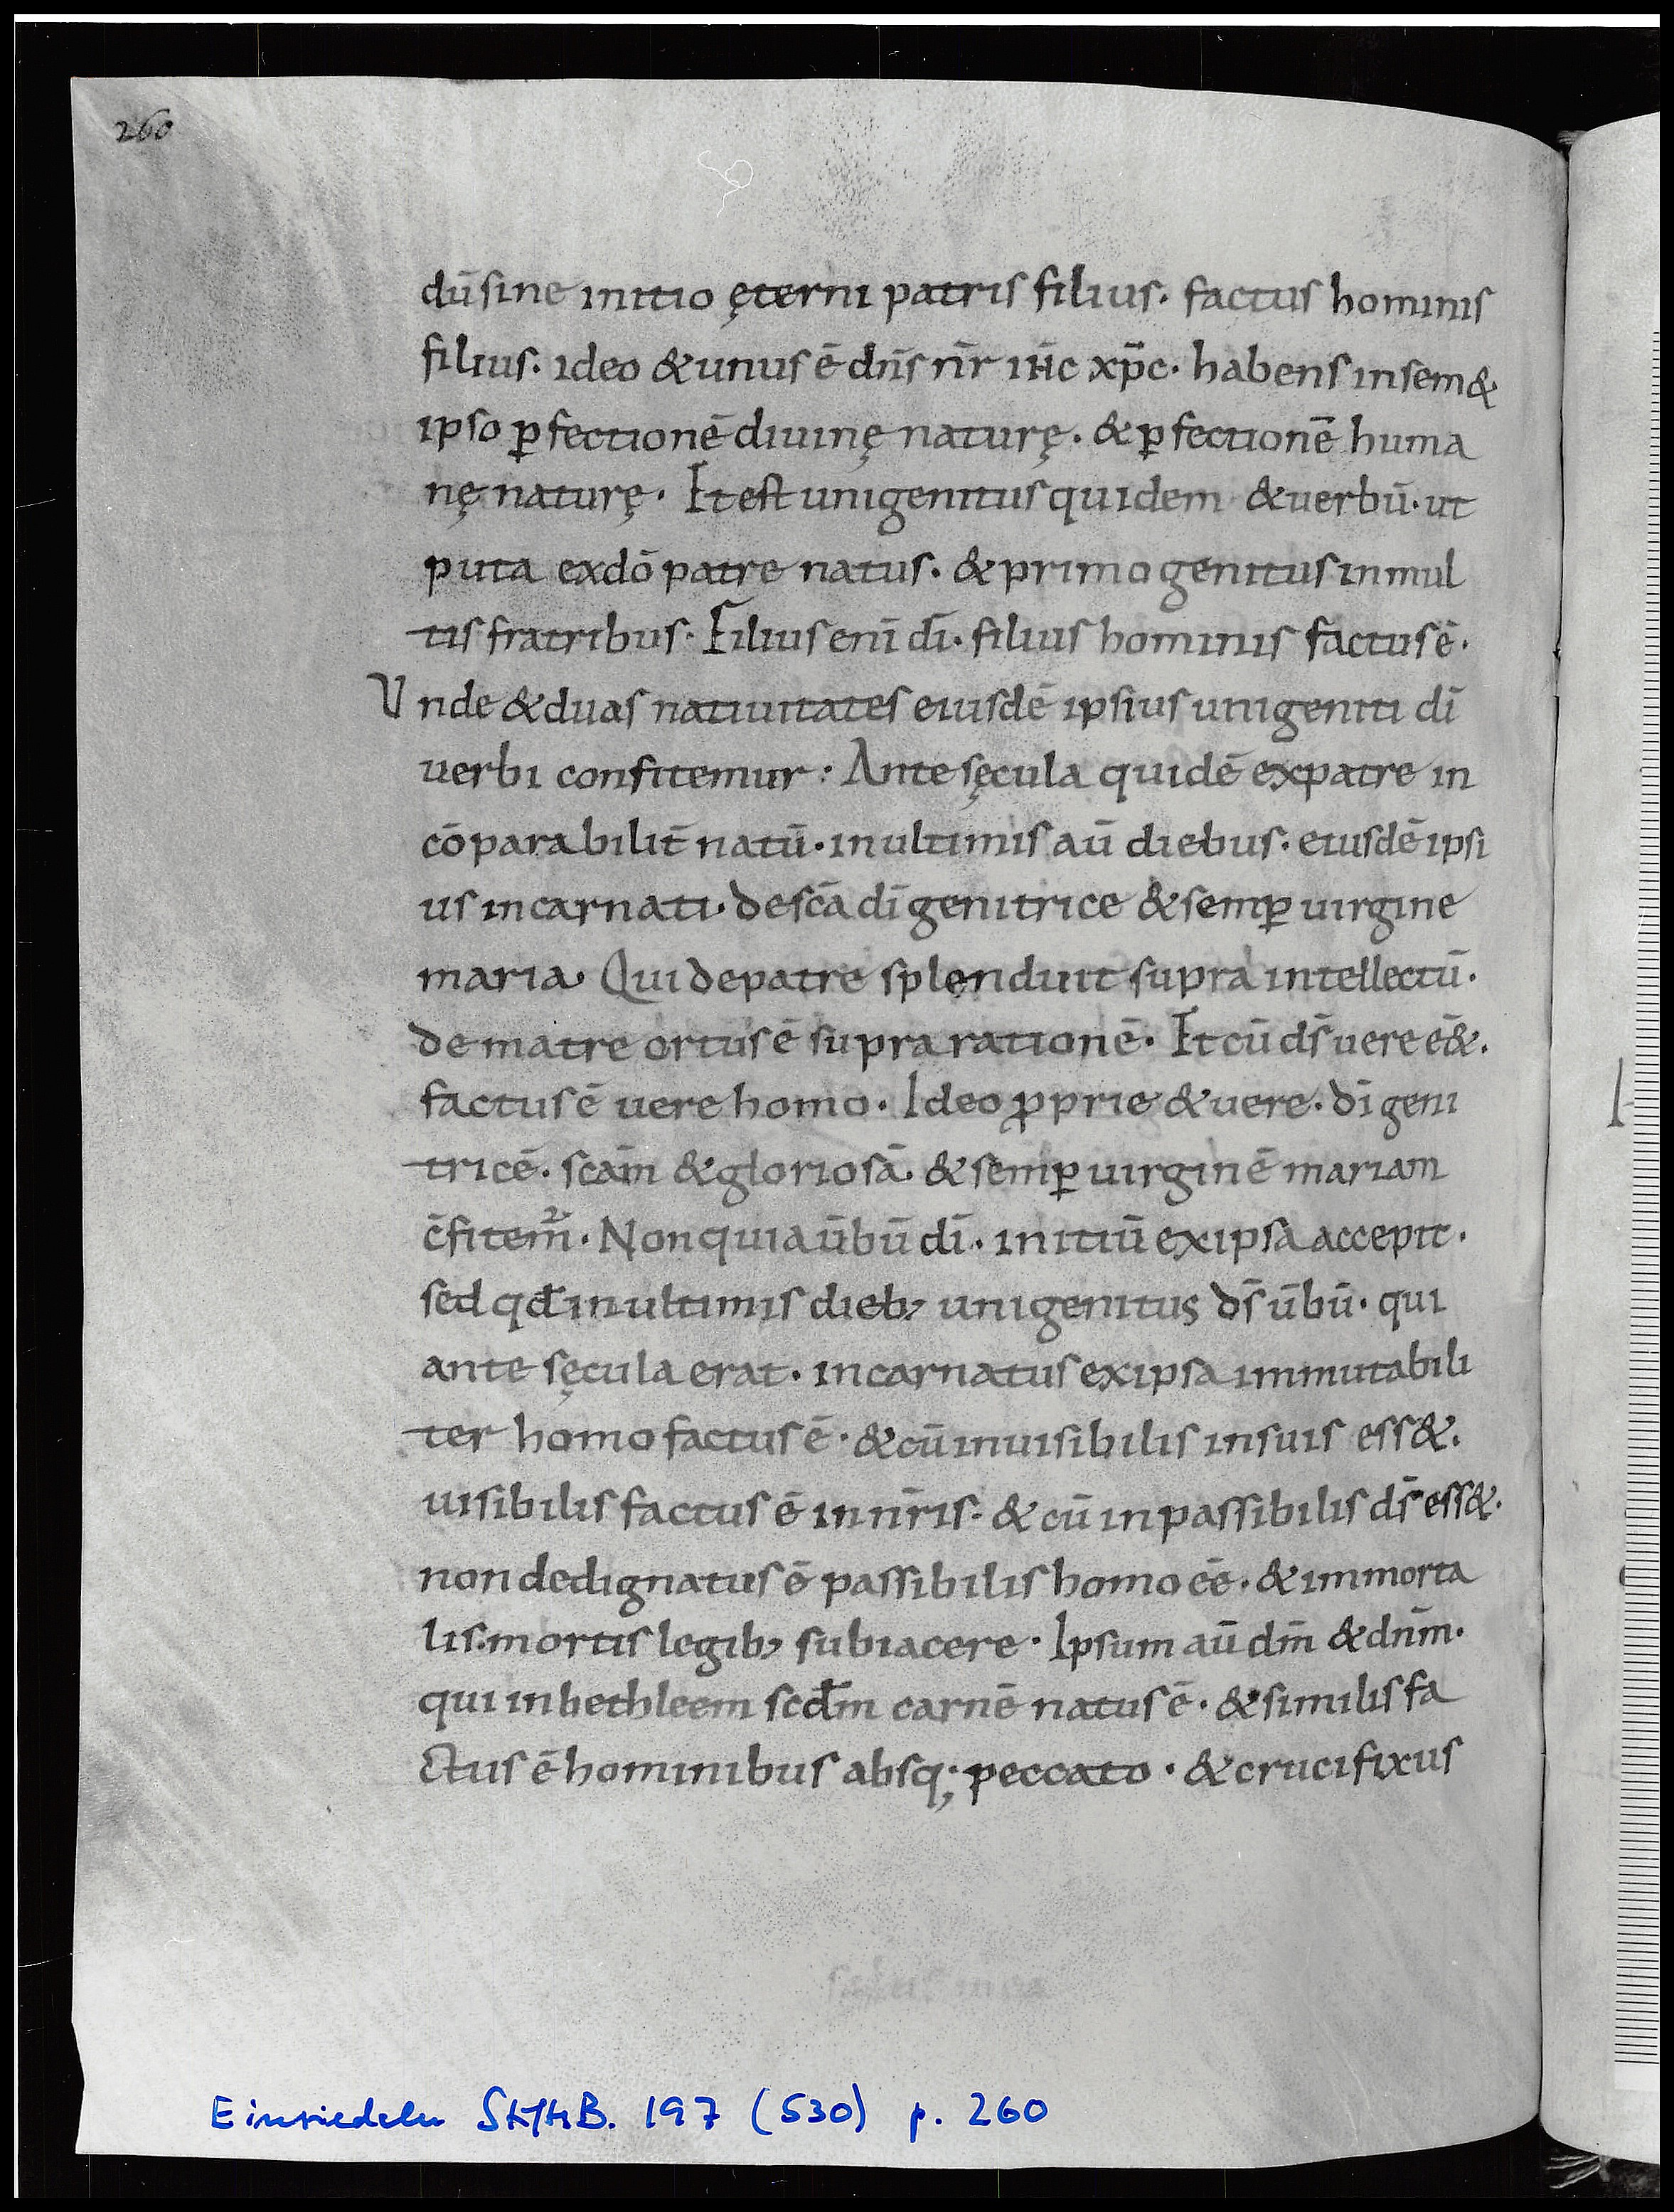 260
dū sine initio ęterni patris filius. factus hominis
filius. ideo & unus ē dn̄s nr̄ ih̄c xp̄c. habens in sem&
ipso ꝑfectionē diuinę naturę. & ꝑfectionē huma
nę naturę. Et est unigenitus quidem & uerbū. ut
puta ex dō patre natus. & primogenitus in mul
tis fratribus. Filius enī dī. filius hominis factus ē.
Unde & duas natiuitates eiusdē ipsius unigeniti dī
uerbi confitemur: Ante sęcula quidē ex patre in
cōparabilit̄ natū. in ultimis aū diebus. eiusdē ipsi
us incarnati. de scā dī genitrice & semꝑ uirgine
maria. Qui de patre splenduit supra intellectū.
de matre ortus ē supra rationē. Et cū ds̄ uere ēē&.
factus ē uere homo. Ideo ꝓprie & uere. dī geni
tricē. scām & gloriosā. & semꝑ uirginē mariam
c̄fitem̄. Non quia ūbū dī. initiū ex ipsa accepit.
sed qđ in ultimis dieb; unigenitus ds̄ ūbū. qui
ante sęcula erat. incarnatus ex ipsa immutabili
ter homo factus ē. & cū inuisibilis in suis ess&.
uisibilis factus ē in nr̄is. & cū inpassibilis ds̄ ess&.
non dedignatus ē passibilis homo ēē. & immorta
lis. mortis legib; subiacere. Ipsum aū dm̄ & dnm̄.
qui in bethleem scđm carnē natus ē. & similis fa
ctus ē hominibus absq; peccato. & crucifixus
Einsiedeln StiftsB. 197 (530) p. 260